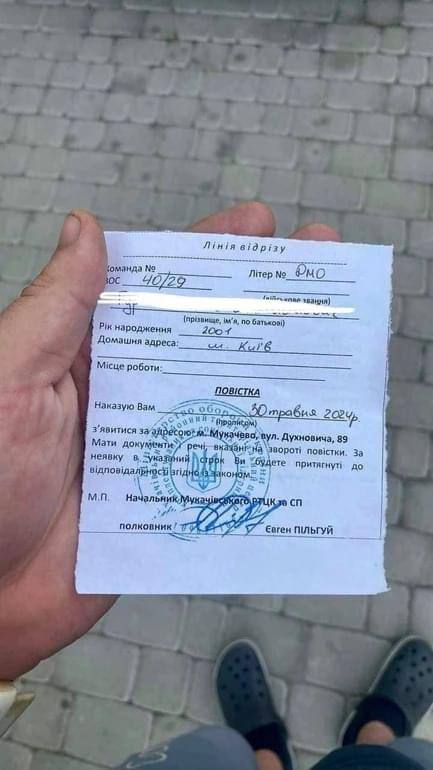 Лінія відрізу
Команда № Літер № РМО
ВОС 40/29
(військове звання)
(прізвище, ім'я, по батькові)
Рік народження 2001
Домашня адреса: м. Київ
Місце роботи:
ПОВІСТКА
Наказую Вам 30 травня 2024р
(прописом)
з'явитися за адресою: м. Мукачево, вул. Духновича, 89
Мати документи і речі, вказані на звороті повістки. За
неявку в указаний строк Ви будете притягнуті до
відповідальності згідно із законом.
М.П. Начальник Мукачівського РТЦК та СП
полковник Євген ПІЛЬГУЙ